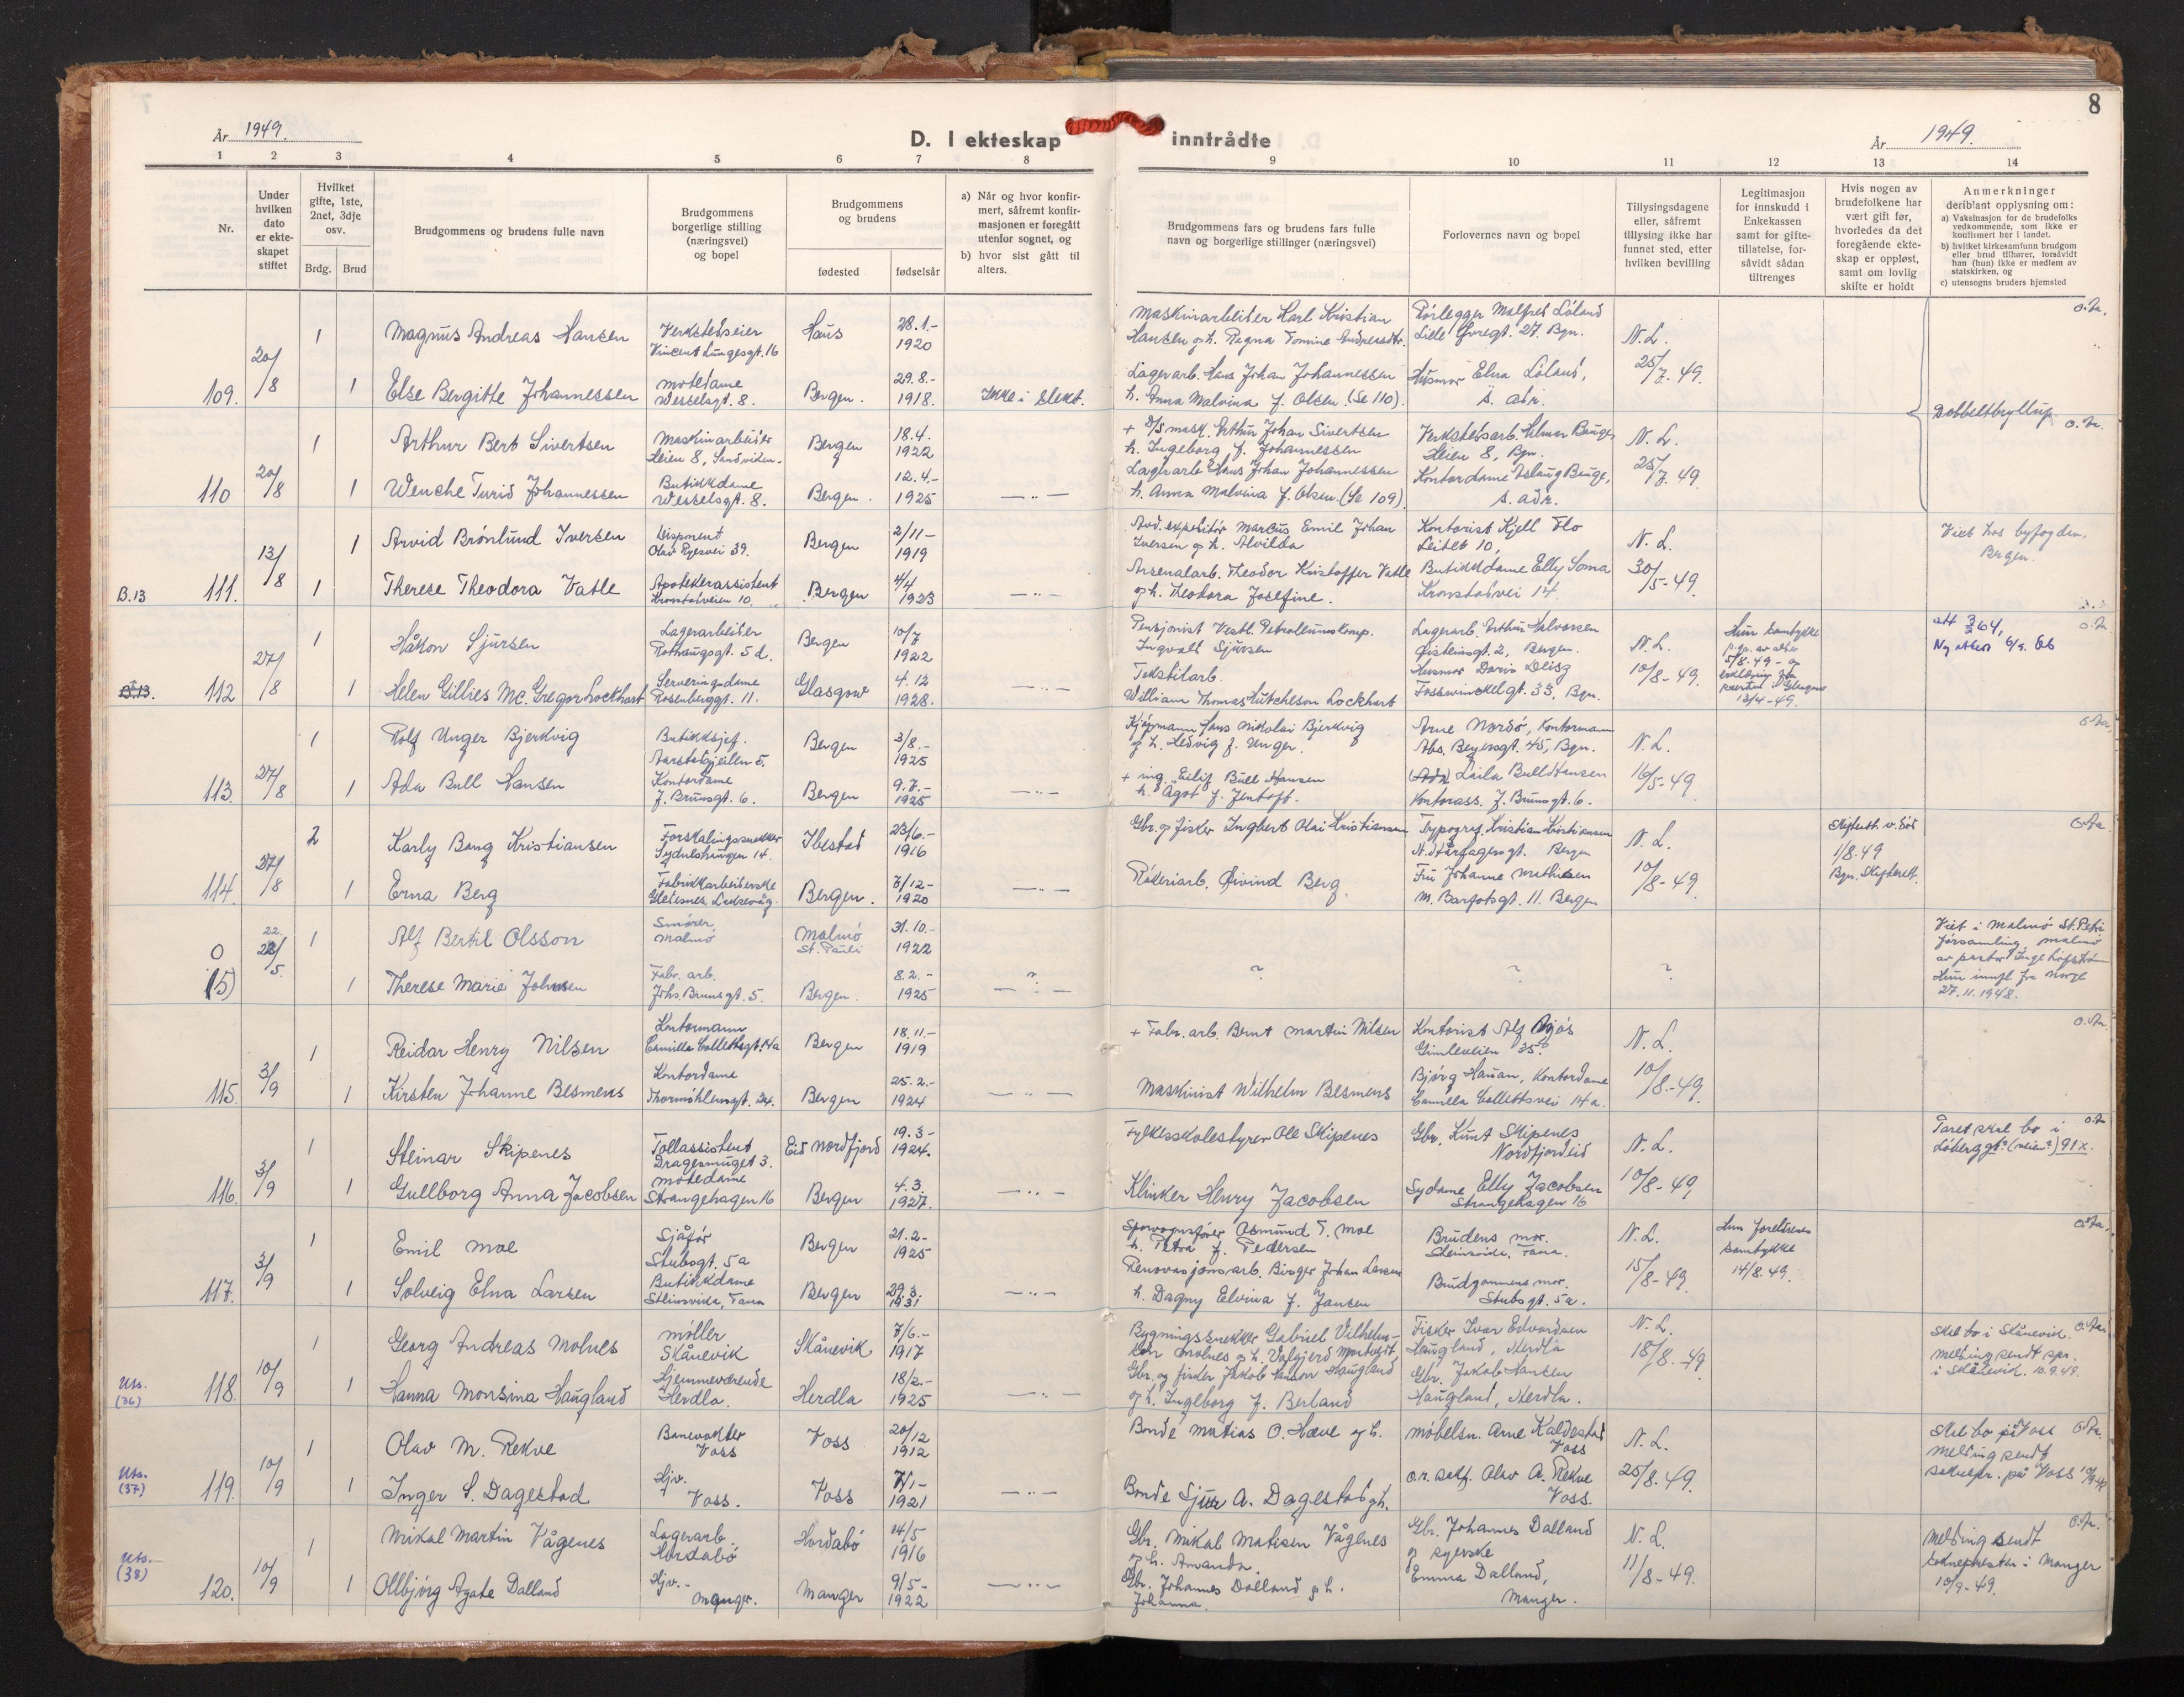 År 1949.
D. I ekteskap
inntrådte
År 1949.
8
1 2 3 4 5 6 7 8 9 10 11 12 13 14
Nr.
Under hvilken dato er ekteskapet stiftet
Hvilket gifte, 1ste, 2net, 3dje osv.
Brdg. Brud
Brudgommens og brudens fulle navn
Brudgommens borgerlige stilling (næringsvei) og bopel
Brudgommens og brudens
fødested fødselsår
a) Når og hvor konfirmert, såfremt konfirmasjonen er foregått utenfor sognet, og
b) hvor sist gått til alters.
Brudgommens fars og brudens fars fulle navn og borgerlige stillinger (næringsvei)
Forlovernes navn og bopel
Tillysingsdagene eller, såfremt tillysing ikke har funnet sted, etter hvilken bevilling
Legitimasjon for innskudd i Enkekassen samt for giftetillatelse, forsåvidt sådan tiltrenges
Hvis nogen av brudefolkene har vært gift før, hvorledes da det foregående ekteskap er oppløst, samt om lovlig skifte er holdt
Anmerkninger deriblant opplysning om:
a) Vaksinasjon for de brudefolks vedkommende, som ikke er konfirmert her i landet.
b) hvilket kirkesamfunn brudgom eller brud tilhører, forsåvidt han (hun) ikke er medlem av statskirken, og
c) utensogns bruders hjemsted
109. 20/8 1 Magnus Andreas Hansen Verkstedseier Vincent Lungesgt. 16 Haus 28.1.- 1920
Maskinarbeider Karl Kristian Hansen og h. Ragna Tomine Andreasdtr. Rørlegger Malfred Løland Lille Øvregt. 27. Bgn. N.L.
1 Else Bergitte Johannessen Motedame Wesselsgt. 8. Bergen. 29.8.- 1918. Ikke i slekt.
Lagerarb. Hans Johan Johannessen h. Anna Malvina f. Olsen. (Se 110). Husmor Elna Løland, s. adr. 25/7. 49. Dobbeltbryllup.
110 20/8 1 Arthur Bert Sivertsen Maskinarbeider Heien 8, Sandviken. Bergen 18.4. 1922
+ D/S mask. Arthur Johan Sivertsen h. Ingeborg f. Johannessen Verkstedsarb. Hilmar Bauge Heien 8, Bgn. N.L.
1 Wenche Turid Johannessen Butikkdame Wesselsgt. 8. Bergen. 12.4.- 1925 — " —
Lagerarb. Hans Johan Johannessen h. Anna Malvina f. Olsen. (Se 109). Kontordame Aslaug Bauge, s. adr. 25/7. 49
B.13 111. 13/8 1 Arvid Brønlund Iversen Disponent Olav Ryesvei 39. Bergen 2/11- 1919
Avd. expeditør Marcus Emil Johan Iversen og h. Alvilda Kontorist Kjell Flo Leitet 10, N.L. Viet hos byfogden, Bergen.
1 Therese Theodora Vatle Apotekerassistent Kronstadveien 10. Bergen 4/4 1923 — " —
Arsenalarb. Theodor Kristoffer Vatle og h. Theodora Josefine. Butikkdame Elly Soma Kronstadvei 14. 30/5-49.
B.13. 112 27/8 1 Håkon Sjursen Lagerarbeider Rothaugsgt. 5 d. Bergen 10/7 1922
Pensjonist Vestl. Petroleumskomp. Ingvald Sjursen Lagerarb. Arthur Halvorsen Øisteinsgt. 2, Bergen. N.L. Hun samtykke
1 Helen Gillies Mc. Gregor Lockhart Serveringsdame Rosenberggt. 11. Glasgow 4.12 1928. — " —
Tekstilarb. William Thomas Hutcheson Lockhart Husmor Doris Deisz Fosswinckelgt. 33, Bgn. 10/8-49.
113. 27/8 1 Rolf Unger Bjerkvig Butikksjef. Bergen 3/8.- 1925
Kjøpmann Hans Nikolai Bjerkvig og h. Hedvig f. Unger. Arne Nordø, Kontormann Abs. Beyersgt. 45, Bgn. N.L.
1 Ada Bull Hansen Kontordame J. Brunsgt. 6. Bergen 9.7.- 1925 — " —
+ ing. Eilif Bull Hansen h. Agot f. Jentoft. Laila Bull Hansen Kontorass. J. Brunsgt. 6. 16/5-49
114. 27/8 2 Karly Bang Kristiansen Forskalingssnekker 14. Ibestad 23/6.- 1916
Gbr. og fisker Ingbert Olai Kristiansen Typograf. Kristian Kristiansen H. Hårfagersgt. Bergen N.L. Skifteatt. v. død 1/8.49 Bgn. Skifterett.
1 Erna Berg Fabrikkarbeiderske Laksevåg. Bergen. 7/12- 1920 — " —
Øivind Berg. Fru Johanne Mathisen M. Barfotsgt. 11. Bergen 10/8-49.
0 (5) 22/5. 1 Alf Bertil Olsson Smører Malmö Malmö St. Pauli 31.10.- 1922
Viet i Malmö St. Petri församling, Malmö av pastor Inge Hun innfl. fra Norge 27.11.1948.
1 Therese Marie Johnsen Fabr. arb. Johs. Brunsgt. 5. Bergen. 8.2.- 1925 ? ? ? ?
115. 3/9 1 Reidar Henry Nilsen Kontormann Camilla Collettsgt. 14a Bergen 18.11.- 1919
+ Fabr. arb. Bernt Martin Nilsen Kontorist Alf Gimleveien 35. N.L.
1 Kirsten Johanne Besmens Kontordame Thormøhlensgt. 24. Bergen 25.2.- 1924 — " —
Maskinist Wilhelm Besmens Bjørg Hauan, Kontordame Camilla Collettsvei 14a. 10/8.-49.
116. 3/9 1 Steinar Skipenes Tollassistent Dragesmuget 3. Eid Nordfjord 19.3- 1924.
Fylkesskolestyrer Ole Skipenes Gbr. Knut Skipenes Nordfjordeid N.L. Paret skal bo i Løberggt? (veien?) 91x.
1 Gullborg Anna Jacobsen Motedame Strangehagen 16 Bergen 4.3. 1927. — " —
Klinker Henry Jacobsen Sydame Elly Jacobsen Strangehagen 16 10/8-49,
117. 3/9 1 Emil Moe Sjåfør Stubsgt. 5a Bergen 21.2- 1925
Sporvognsfører Asmund T. Moe h. Petra f. Pedersen Brudens mor. Steinsvika, Fana. N.L. Hun foreldrenes samtykke 14/8.49.
1 Solveig Elna Larsen Butikkdame Steinsvika, Fana Bergen 29.3. 1931 — " —
Renovasjonsarb. Birger Johan Larsen h. Dagny Elvina f. Jansen Brudgommens mor. Stubsgt. 5a. 15/8-49.
Uts. (36) 118. 10/9 1 Georg Andreas Molnes Møller Skånevik Skånevik 7/6.- 1917
Bygningssnekker Gabriel Vilhelm Molnes og h. Valgjerd Fisker Ivar Edvardsen Haugland, Herdla N.L. Skal bo i Skånevik. Melding sendt spr. i Skånevik. 10.9.49.
1 Hanna Monsina Haugland Hjemmeværende Herdla. Herdla 18/2.- 1925 — " —
Gbr. og fisker Jakob Hanson Haugland og h. Ingeborg f. Berland Gbr. Jakob Hansen Haugland, Herdla. 18/8.-49
Uts. (37) 119. 10/9 1 Olav M. Rekve Banevokter Voss Voss 20/12 1912
Bonde Matias O. Hæve og h. Møbelsn. Arne Kaldestad Voss N.L. Skal bo på Voss Melding sendt soknepr. på Voss
1 Inger S. Dagestad Hjv. Voss. Voss 7/1- 1921 — " —
Bonde Sjur A. Dagestad og h. o.r. sakf. Olav A. Rekve Voss. 25/8.49.
Uts. (38) 120. 10/9 1 Mikal Martin Vågenes Lagerarb. Hordabø Hordabø 14/5 1916
Gbr. Mikal Matisen Vågenes og h. Amanda. Gbr. Johannes Dalland og syerske N.L. Melding sendt soknepresten i Manger 10/9-49.
1 Ollbjørg Agate Dalland Hjv.- Manger. Manger 9/5- 1922 — " —
Gbr. Johannes Dalland og h. Johanna. Emma Dalland, Manger. 11/8-49.